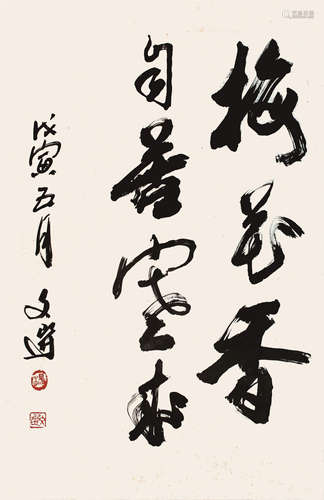 梅花香
自苦寒来
戊寅五月
文选